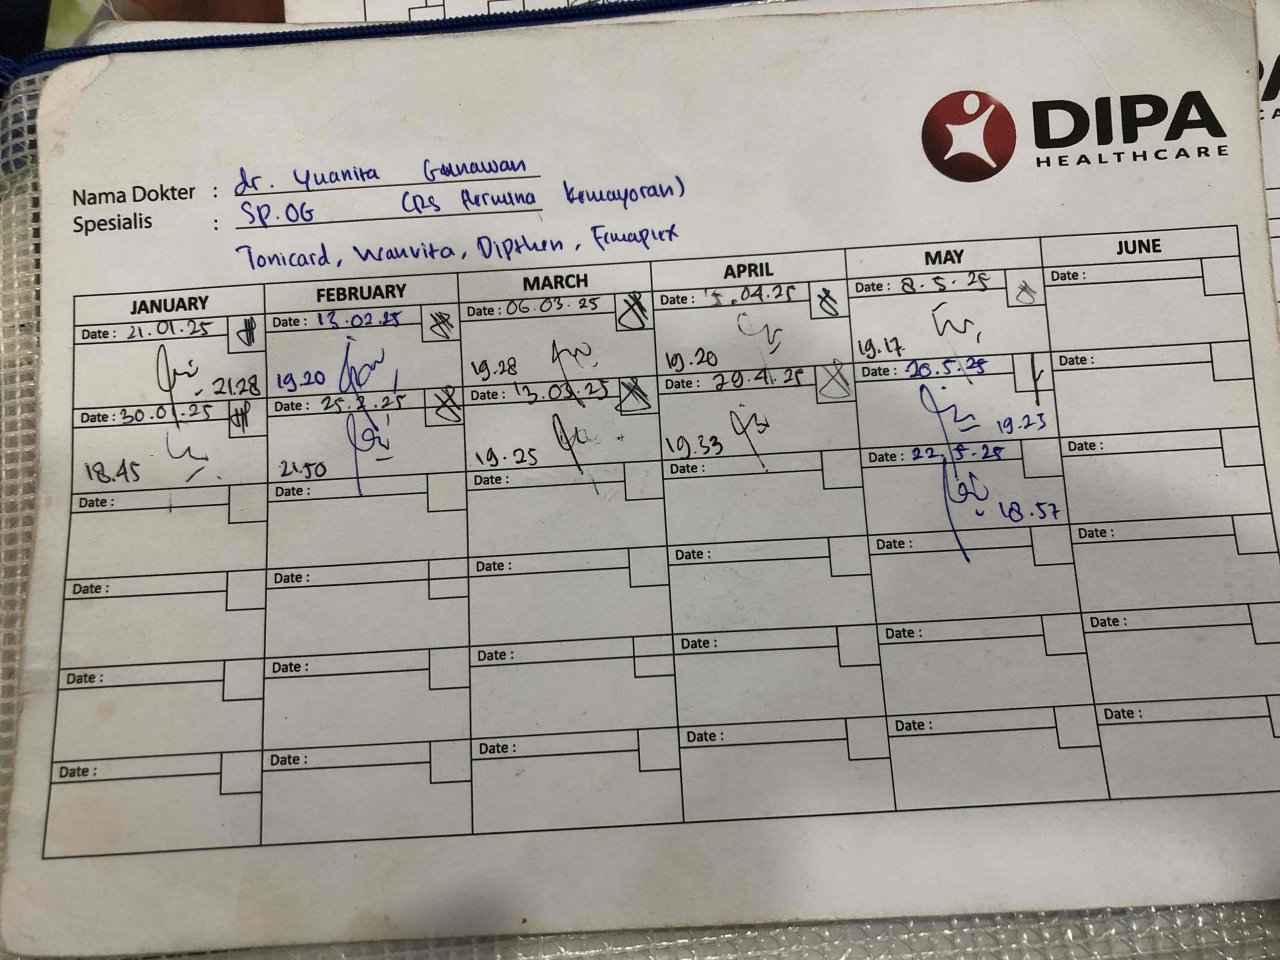 DIPA
HEALTHCARE
Nama Dokter : dr. Yuanita Gunawan
Spesialis : SP.OG (RS Hermina Kemayoran)
Tonicard, Wanvita, Dipthen, Femaplex
JANUARY FEBRUARY MARCH APRIL MAY JUNE
Date : 21.01.25 Date : 13.02.25 Date : 06.03.25 Date : .04.25 Date : 8.5.25 Date :
21.28 19.20 19.28 19.20 19.17
Date : 30.01.25 Date : 25.2.25 Date : 13.03.25 Date : 29.4.25 Date : 20.5.25 Date :
18.45 21.50 19.25 19.33 19.23
Date : Date : Date : Date : Date : 22.5.25 Date :
18.57
Date : Date : Date : Date : Date : Date :
Date : Date : Date : Date : Date : Date :
Date : Date : Date : Date : Date : Date :